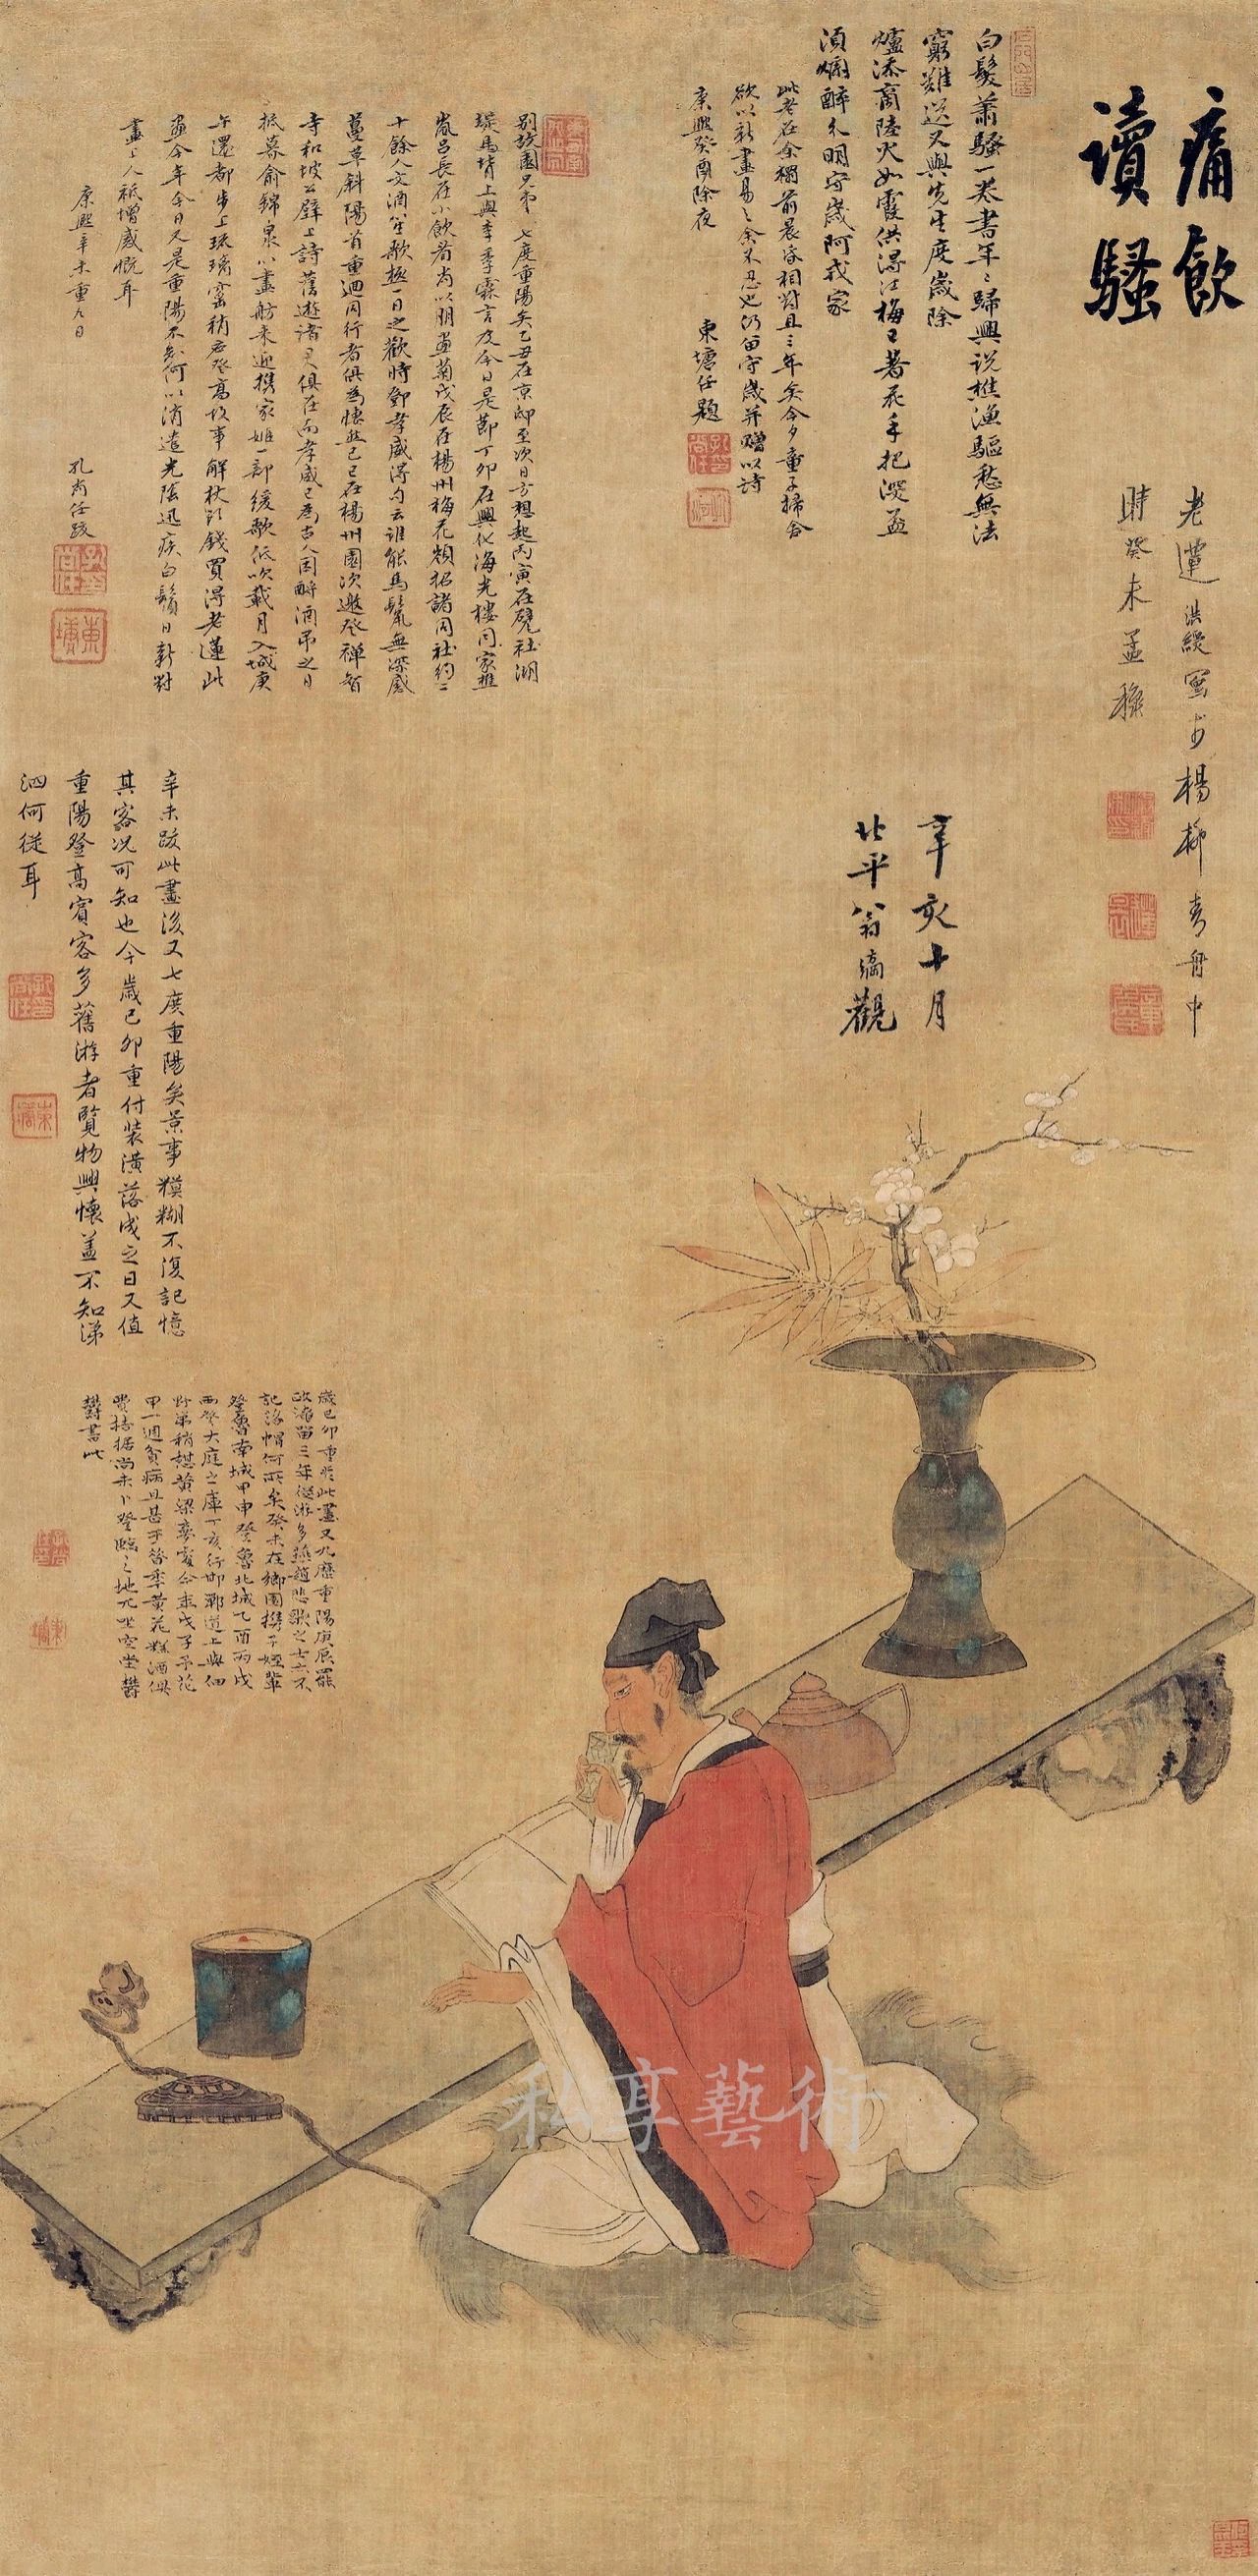 痛飲
讀騷
老蓮洪綬寫於楊柳青舟中
時癸未孟穐
白髮蕭騷一卷書年〻歸興說樵漁驅愁無法
窮難送又與先生度歲除
爐添商陸火如霞供得江梅已著花手把深盃
須爛醉不明守歲阿戎家
此老在余獨前晨昏相對且三年矣今夕童子掃舍
欲以新畫易〻余不忍也仍留守歲并贈以詩
康熙癸酉除夜 東塘任題
辛亥十月
北平翁 觀
別故園兄弟七度重陽矣乙丑在京邸至次日方想起丙寅在甓社湖
堤馬背上與李季霖言及今日是節丁卯在興化海光樓同家樵
嵐呂長在小飲者尚以明畫菊戊辰在楊州梅花嶺招諸同社約二
十餘人文酒笙歌極一日之歡時鄧孝威得句云誰能馬鬣無深感
蔓草斜陽首重迴同行者俱為悵然己巳在楊州園次邀登禪智
寺和坡公壁上詩舊遊諸君俱在而孝威已為古人因酹酒吊之日
抵暮俞錦泉以畫舫來迎携家姬一部緩歌低吹載月入城庚
午還都步上琉璃窰稍應登高故事解杖頭錢買得老蓮此
畫今年今日又是重陽不知何以消遣光陰迅疾白鬚日新對
畫上人祇增感慨耳
康熙辛未重九日
孔尚任跋
辛未跋此畫後又七度重陽矣景事糢糊不復記憶
其客况可知也今歲己卯重付裝潢落成之日又值
重陽登高賓客多舊游者覧物興懷盖不知涕
泗何從耳
歲己卯重裝此畫又九歷重陽庚辰罷
政淹留三年從游多燕趙悲歌之士亦不
記落帽何所矣癸未在鄉園携子姪輩
登魯南城甲申登魯北城乙酉丙戌
兩登大庭之庫丁亥行邯鄲道上與佃
野菊稍想黄梁夢 今年戊子予花
甲一週貧病且甚于昔年黄花 酒俱
費拮据尚未卜登臨之地兀坐空堂鬱
鬱書此
私享藝術